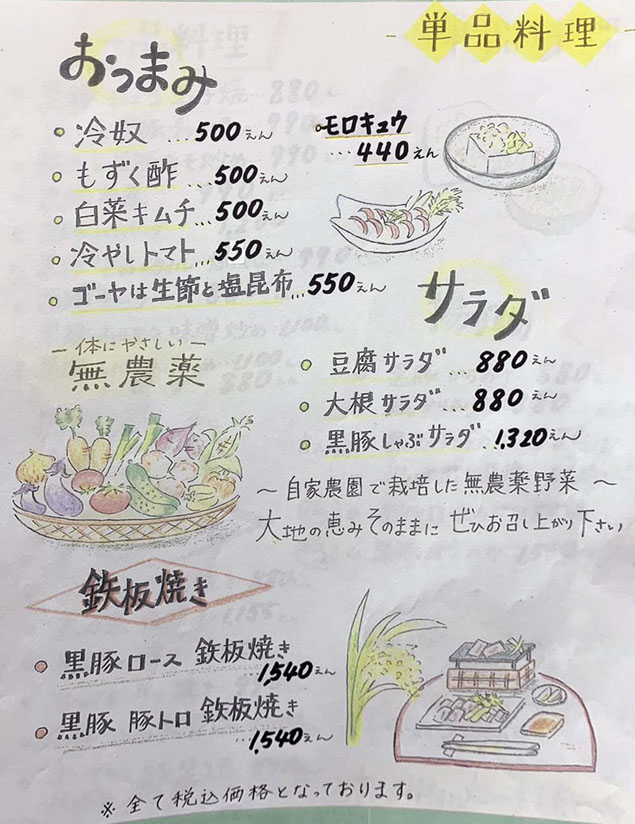 単品料理
おつまみ
冷奴 ...500えん
もずく酢 ...500えん
白菜キムチ...500えん
冷やしトマト...550えん
ゴーヤは生節と塩昆布...550えん
モロキュウ
...440えん
サラダ
豆腐サラダ ...880えん
大根サラダ...880えん
黒豚しゃぶサラダ..1,320えん
－体にやさしい－
無農薬
～自家農園で栽培した無農薬野菜～
大地の恵みそのままに ぜひお召し上がり下さい
鉄板焼き
黒豚ロース 鉄板焼き
...1,540えん
黒豚 豚トロ 鉄板焼き
...1,540えん
※全て税込価格となっております。